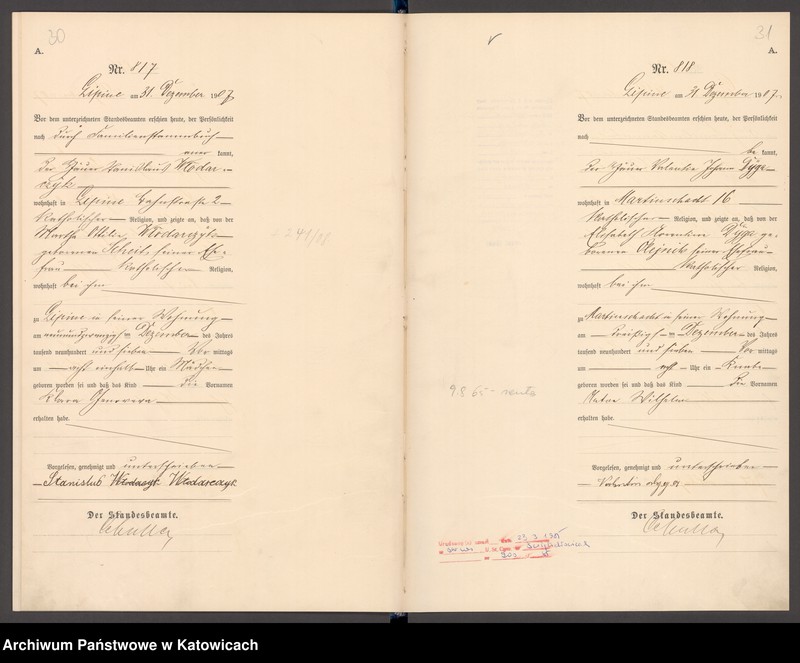 30
A.
Nr. 817
Lipine am 31. Dezember 1907.
Vor dem unterzeichneten Standesbeamten erschien heute, der Persönlichkeit
nach durch Familienstammbuch
kannt,
der Häuer Stanislaus Wlodar-
czyk
wohnhaft in Lipine Bahnstraße 2
katholischer Religion, und zeigte an, daß von der
Martha Ottilie Wlodarczyk
geborenen Scheit, seiner Ehe-
frau
katholischer Religion,
wohnhaft bei ihm
zu Lipine in seiner Wohnung
am neunundzwanzigsten Dezember des Jahres
tausend neunhundert und sieben Vor mittags
um acht einhalb Uhr ein Mädchen
geboren worden sei und daß das Kind die Vornamen
Klara Genovera
erhalten habe.
Vorgelesen, genehmigt und unterschrieben
Stanislus Wlodarczyk
Der Standesbeamte.
31
A.
Nr. 818
Lipine am 31 Dezember 1907.
Vor dem unterzeichneten Standesbeamten erschien heute, der Persönlichkeit
nach
be kannt,
der Häuer Valentin Johann
wohnhaft in Martinschacht 16
katholischer Religion, und zeigte an, daß von der
Elisabeth Florentine ge-
borenen Olejnik seiner Ehefrau
katholischer Religion,
wohnhaft bei ihm
zu Martinschacht in seiner Wohnung
am dreißigsten Dezember des Jahres
tausend neunhundert und sieben Vor mittags
um acht Uhr ein Knabe
geboren worden sei und daß das Kind die Vornamen
Wilhelm
erhalten habe.
Vorgelesen, genehmigt und unterschrieben
Der Standesbeamte.
Archiwum Państwowe w Katowicach